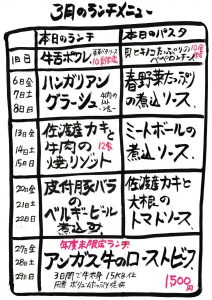 3月のランチメニュー
本日のランチ
本日のパスタ
1日㊐
牛舌ボウル
10食限定
貝ときのこたっぷりの
10食
6日㊎
7日㊏
8日㊐
ハンガリアン
グラーシュ
牛肉の
春野菜たっぷり
の煮込ソース
13日㊎
14日㊏
15日㊐
佐渡産カキと
牛肉の
焼リゾット
12食
ミートボールの
煮込ソース
20日㊎
21日㊏
22日㊐
皮付豚バラ
のベルギービール
煮込み
佐渡産カキと
大根の
トマトソース
27日㊎
28日㊏
29日㊐
年度末限定ランチ
アンガス牛のローストビーフ
3日間で牛肉 15kg仕
用意 ボリュームたっぷり提供
1500円